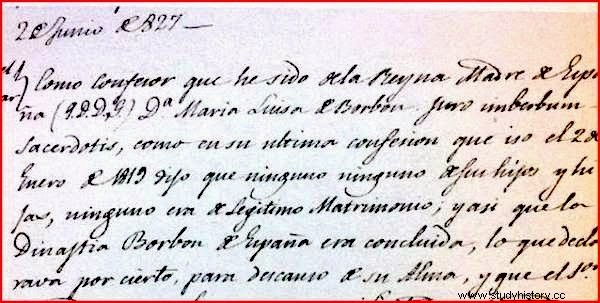 2 de Junio de 1827 —
Como confesor que he sido de la Reyna Madre de Espa
ña (q.D.D.G.) Dª Maria Luisa de Borbon. Juro imberbum
Sacerdotis, como en su ultima confesion que iso el 2 de
Enero de 1819 dijo que ninguno ninguno de sus hijos y hi
jas, ninguno era de Legitimo Matrimonio; y asi que la
Dinastia Borbon de España era concluida, lo que decla
rava por cierto, para descanso de su Alma, y que el Sor.
www.studyhistory.cc